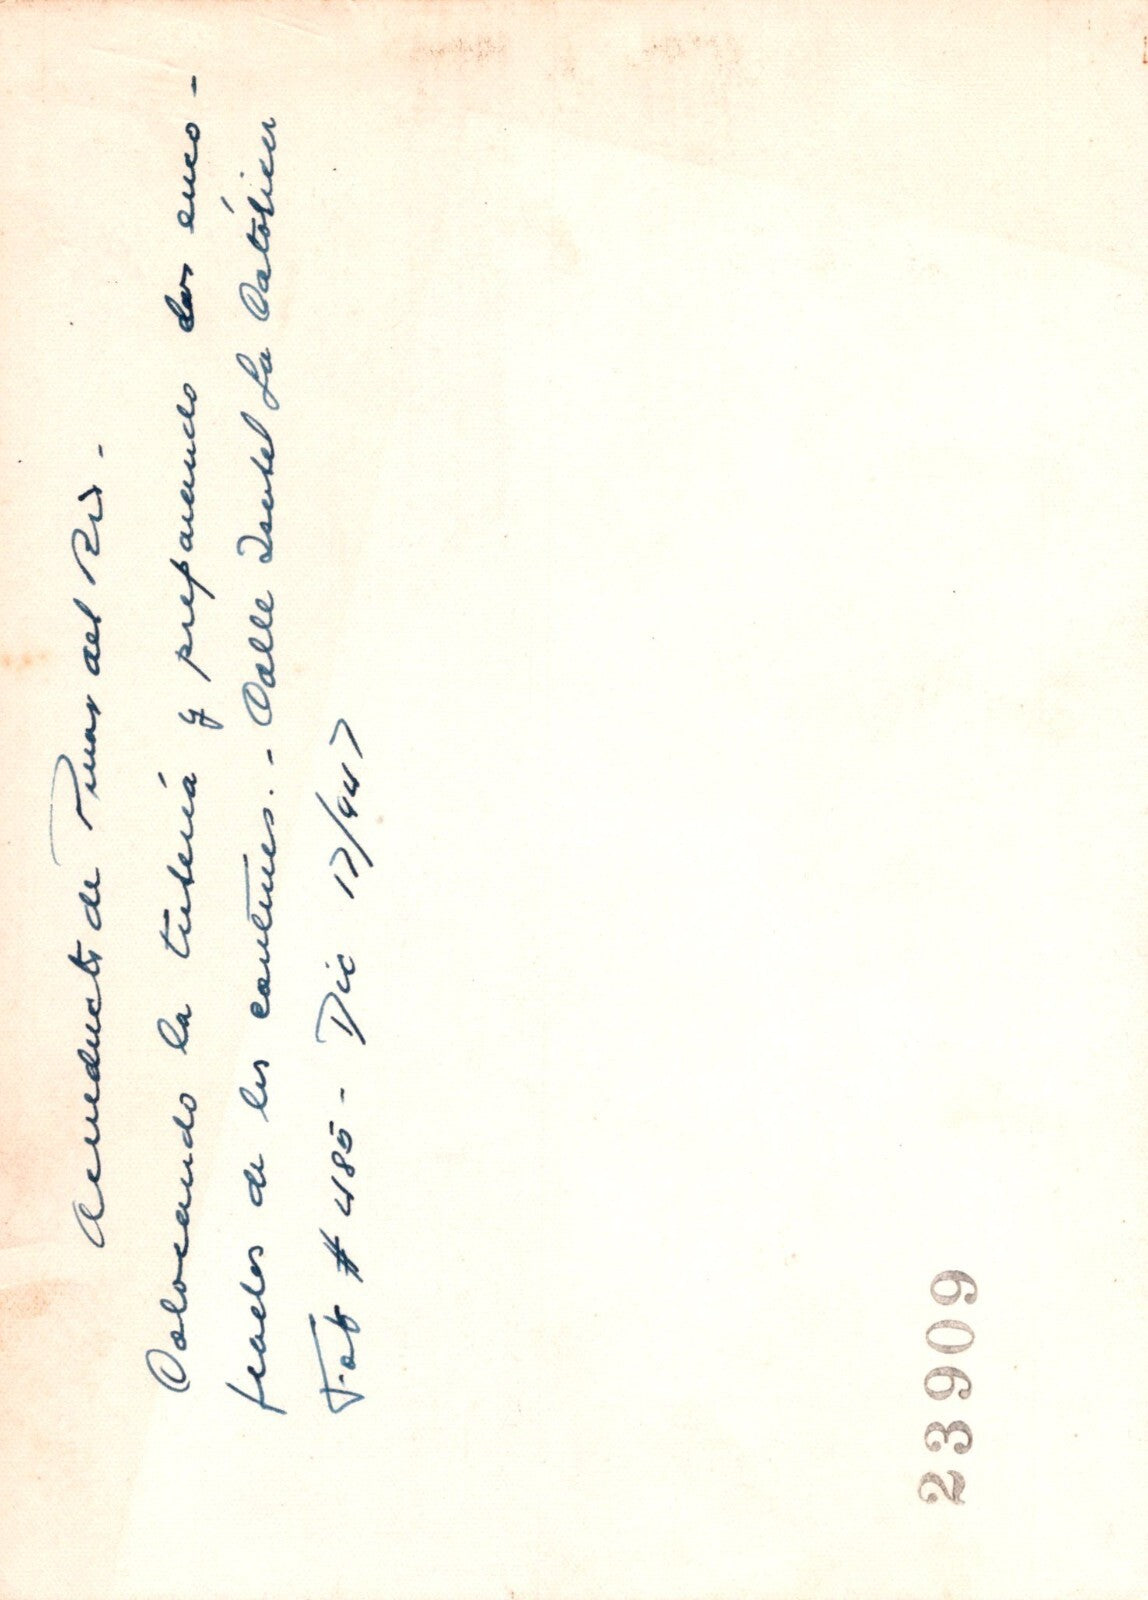 Acueducto de Pinar del Rio. -
Colocando la tubería y preparando los enco -
frados de los contenes. - Calle Isabel La Católica
Foto # 485 - Dic 17/947
23909